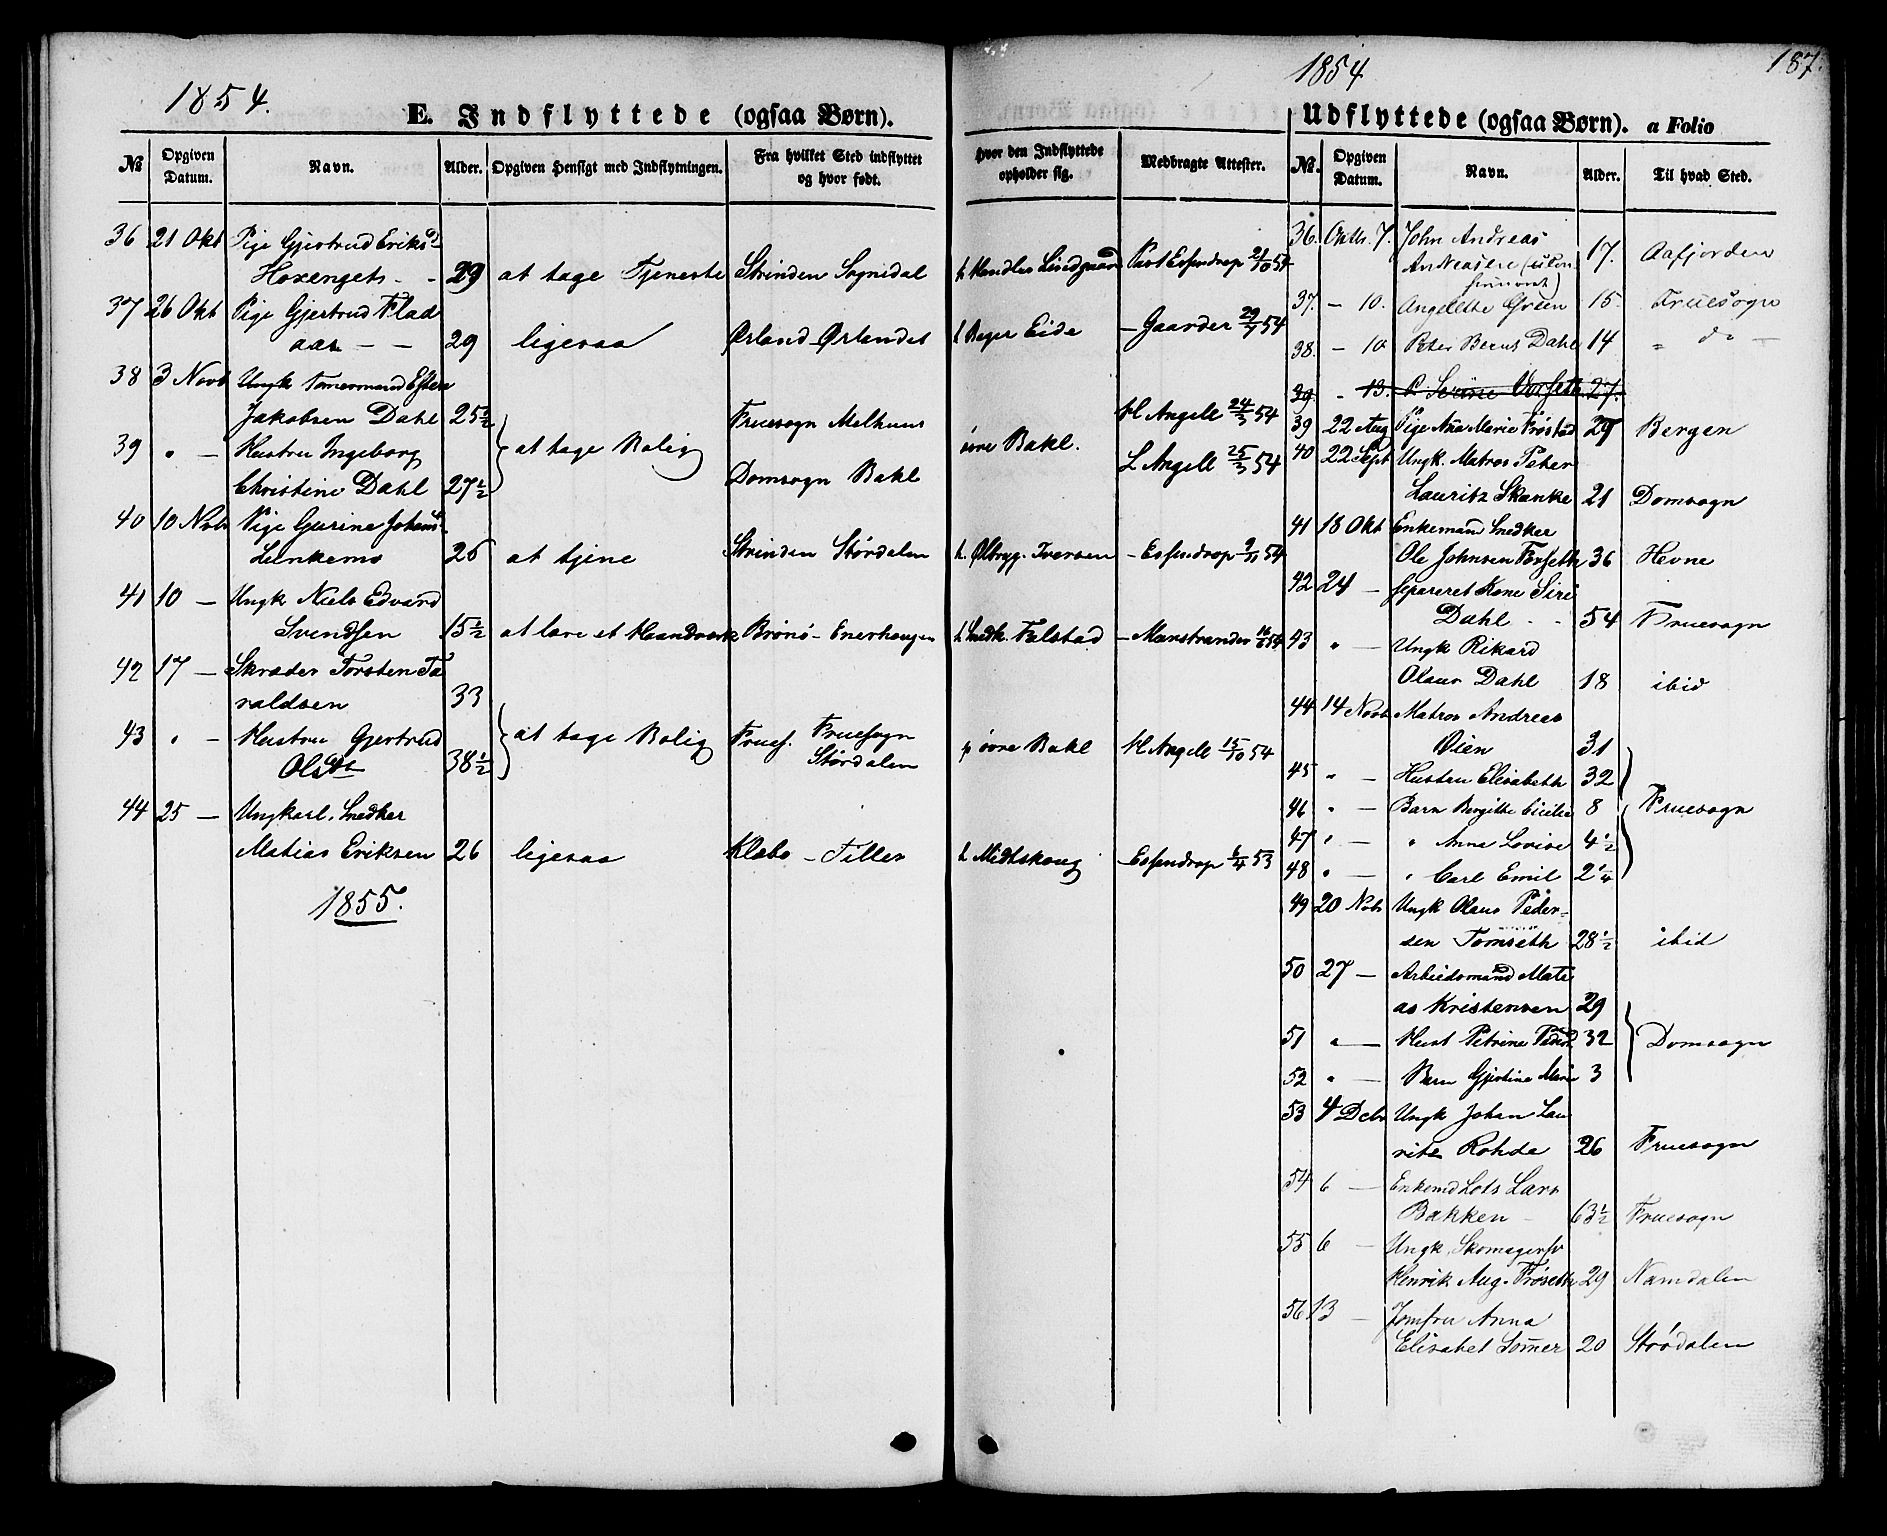 1854.
E. Indflyttede (ogsaa Børn).
№ Opgiven Datum. Navn. Alder. Opgiven Hensigt med Indflytningen. Fra hvilket Sted indflyttet og hvor født. Hvor den Indflyttede opholder sig. Medbragte Attester.
36 21 Okt Pige Gjertrud Eriksdr
Hoxengets - - 29 at tage Tjeneste Strinden Sognedal h. Handler Lindgaard Past Essendrop 21/10 54
37 26 Okt Pige Gjertrud Flad
aas - - 29 ligesaa Ørland - Ørlandet h Eide - Gaarder 29/9 54
38 3 Novb Ungk Tømermand Esten
Jakobsen Dahl 25½ Fruesogn Melhuus Kl Angell 24/3 54
39 " - Hustru Ingeborg at tage Bolig øvre Bakl.
Christine Dahl 27½ Domsogn Bakl L Angell 25/3 54
40 10 Novb Pige Gurine Johans-
Lunkems 26 at tjene Strinden Størdalen h. Ølbryg. Iversen - Essendrop 9/11 54
41 10 - Ungk Niels Edvard
Svendsen 15½ at lære et Haandværk Brønø - Enerhaugen h. Snedk. Falstad - Manstrander
42 17 - Skræder Torsten Ta
raldsen 33
43 " - Hustru Gjertrud at tage Bolig Fruef. Fruesogn p øvre Bakl Kl Angell 15/10 54
Olsdtr 38½ Størdalen
44 25 - Ungkarl. Snedker
Matias Eriksen 26 ligesaa Klæbo - Tiller h Midtskoug - Essendrop 6/4 53
1855.
1854
187.
Udflyttede (ogsaa Børn). a Folio
№. Opgiven Datum. Navn. Alder. Til hvad Sted.
36. Oktbr. 7. John Andreas
Andreasen 17. Aafjorden
37. - 10. Angelette Green 15. Fruesogn
38. - 10 Peter Beeus Dahl 14 " do -
39. - 13. P. 27.
39 22 Aug Pige Ana Marie Frøstad 29 Bergen
40 22 Sept Ungk. Matros Peter
Lauritz Skanke 21 Domsogn
41 18 Okt Enkemand Snedker
Ole Johnsen Forseth 36 Hevne
42 24 - separeret Kone Siri
Dahl - - 54 Fruesogn
43 " - Ungk Rikard
Olaus Dahl 18 ibid
44 14 Novb Matros Andreas
Øien 31
45 " - Hustru Elisabeth 32
46 " - Barn Bergitte Cicilie 8 Fruesogn
47 " - " Anna Lovise 4½
48 " - " Carl Emil 2¼
49 20 Nobr Ungk Olaus Peder-
sen Tomseth 28½ ibid
50 27 - Arbeidsmand Mati
as Kristensen 29
51 " - Hust Petrine Pedersd 32 Domsogn
52 " - Barn Gjertine Marie 3
53 4 Debr Ungk Johan Lau
ritz Rohde 26 Fruesogn
54 6 - Enkemd Lots Lars
Bakken - 63½ Fruesogn
55 6 - Ungk. Skomagersv
Henrik Aug. Frøseth 29 Namdalen
56 13 - Jomfru Anna
Elisabet Somer 20 Stordalen